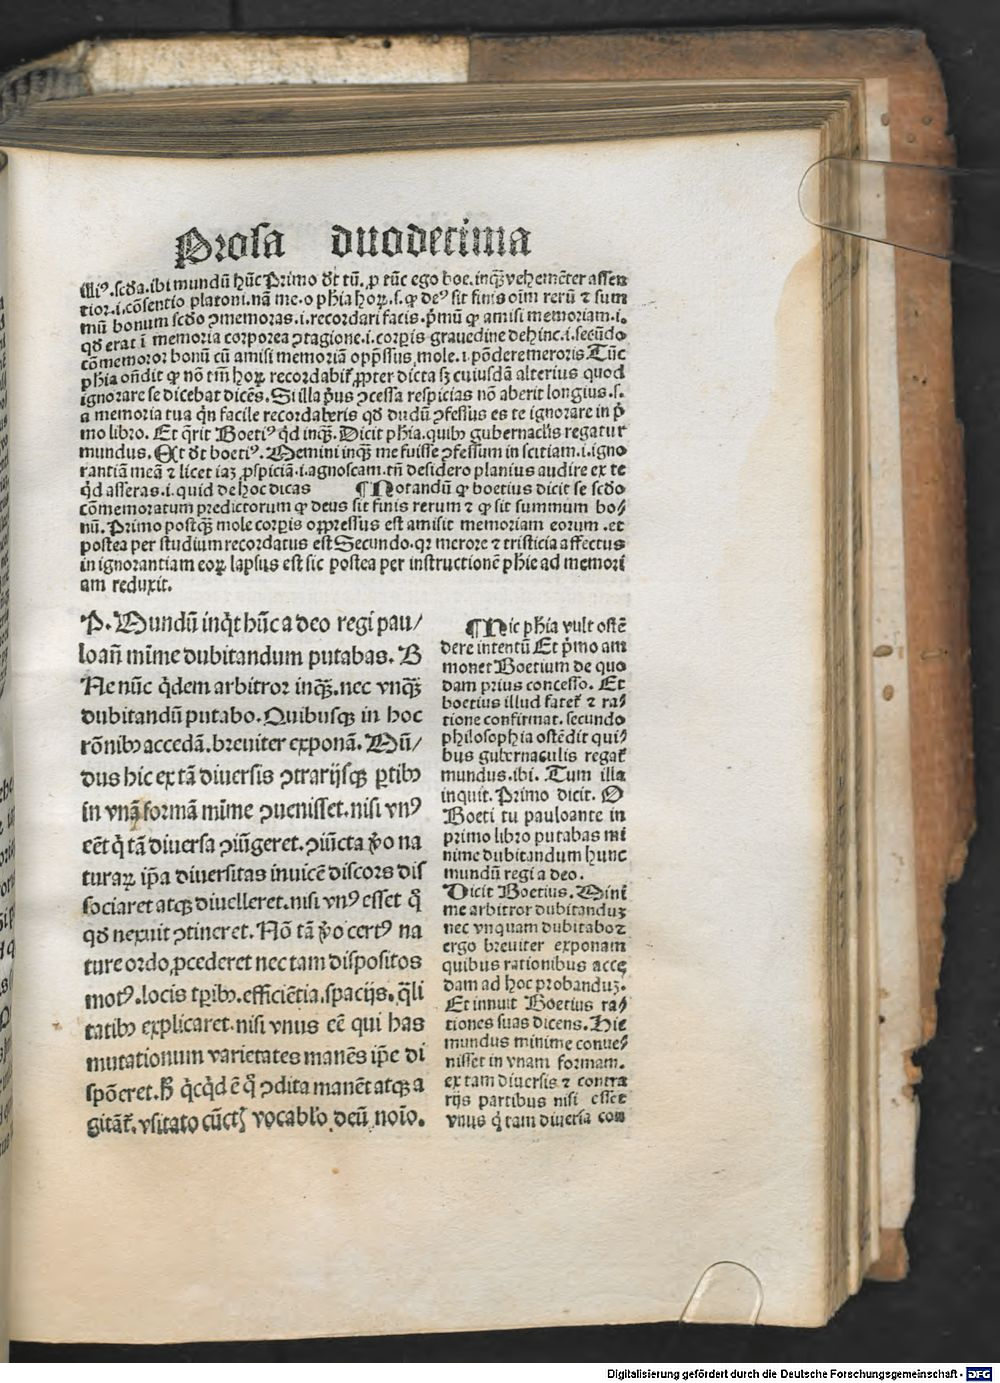 Prosa duodecima
. scd̄a. ibi mundū hūc Primo d̄t tū. p tūc ego boe. inqꝫ vehemēter assen
tior. i. cōsentio platoni. nā me. o ph̄ia hoꝝ. s. ꝙ deꝰ sit finis oīm rerū ⁊ sum
mū bonum scd̄o ꝯmemoras. i. recordari facis. p̄mū ꝙ amisi memoriam. i.
qd̄ erat ī memoria corporea ꝯtagione. i. corꝑis grauedine dehinc. i. secūdo
cōmemoror bonū cū amisi memoriā opp̄ssus mole. i. pōdere meroris Tūc
ph̄ia oñdit ꝙ nō tm̄ hoꝝ recordabit̄ ꝓpter dicta sꝫ cuiusdā alterius quod
ignorare se dicebat dicēs. Si illa p̄us ꝯcessa respicias nō aberit longius. s.
a memoria tua qn̄ facile recordaberis qd̄ dudū ꝯfessus es te ignorare in p̄
mo libro. Et q̄rit Boetiꝰ qd̄ inqꝫ. Dicit ph̄ia. quibꝰ gubernacl̄is regatur
mundus. Et d̄t boetiꝰ. Memini inqꝫ me fuisse ꝯfessum inscitiam. i. igno
rantiā meā ⁊ licet iaꝫ ꝓspiciā. i. agnoscam. tn̄ desidero planius audire ex te
qd̄ asseras. i. quid de hoc dicas ¶ Notandū ꝙ boetius dicit se scd̄o
cōmemoratum predictorum ꝙ deus sit finis rerum ⁊ ꝙ sit summum bo/
nū. Primo postqꝫ mole corꝑis oppressus est amisit memoriam eorum. et
postea per studium recordatus est Secundo. qꝛ merore ⁊ tristicia affectus
in ignorantiam eoꝝ lapsus est sic postea per instructionē ph̄ie ad memori
am reduxit.
P. Mundū inqͥt hūc a deo regi pau/
loañ mīme dubitandum putabas. B
Ne nūc qͥdem arbitror inqꝫ. nec vnqꝫ
dubitandū putabo. Quibusqꝫ in hoc
rōnibꝰ accedā. breuiter exponā. Mū/
dus hic ex tā diuersis ꝯtrarijsqꝫ ꝑtibꝰ
in vnā formā mīme ꝯuenisset. nisi vnꝰ
eēt qͥ tā diuersa ꝯiūgeret. ꝯiūcta v̄o na
turaꝝ ip̄a diuersitas inuicē discors dis
sociaret atqꝫ diuelleret. nisi vnꝰ esset qͥ
qd̄ nexuit ꝯtineret. Nō tā v̄o certꝰ na
ture ordo ꝓcederet nec tam dispositos
motꝰ. locis tp̄ibꝰ. efficiētia. spacijs. q̄li
tatibꝰ explicaret. nisi vnus eē qui has
mutationum varietates manēs ip̄e di
spōeret. H̄ qͥcqͥd ē qͦ ꝯdita manēt atqꝫ a
gitāt̄. vsitato cūctꝭ vocabl̓o deū noīo.
¶ Hic ph̄ia vult ostē
dere intentū Et p̄mo am
monet Boetium de quo
dam prius concesso. Et
boetius illud fatet̄ ⁊ ra/
tione confirmat. secundo
philosophia ostēdit qui/
bus gubernaculis regat̄
mundus. ibi. Tum illa
inquit. Primo dicit. O
Boeti tu pauloante in
primo libro putabas mi
nime dubitandum hunc
mundū regi a deo.
Dicit Boetius. Mini
me arbitror dubitanduꝫ
nec vnquam dubitabo ⁊
ergo breuiter exponam
quibus rationibus acce
dam ad hoc probanduꝫ.
Et innuit Boetius ra/
tiones suas dicens. Hic
mundus minime conue/
nisset in vnam formam.
ex tam diuersis ⁊ contra
rijs partibus nisi esset
vnus qͥ tam diuersa con
Digitalisierung gefördert durch die Deutsche Forschungsgemeinschaft - DFG